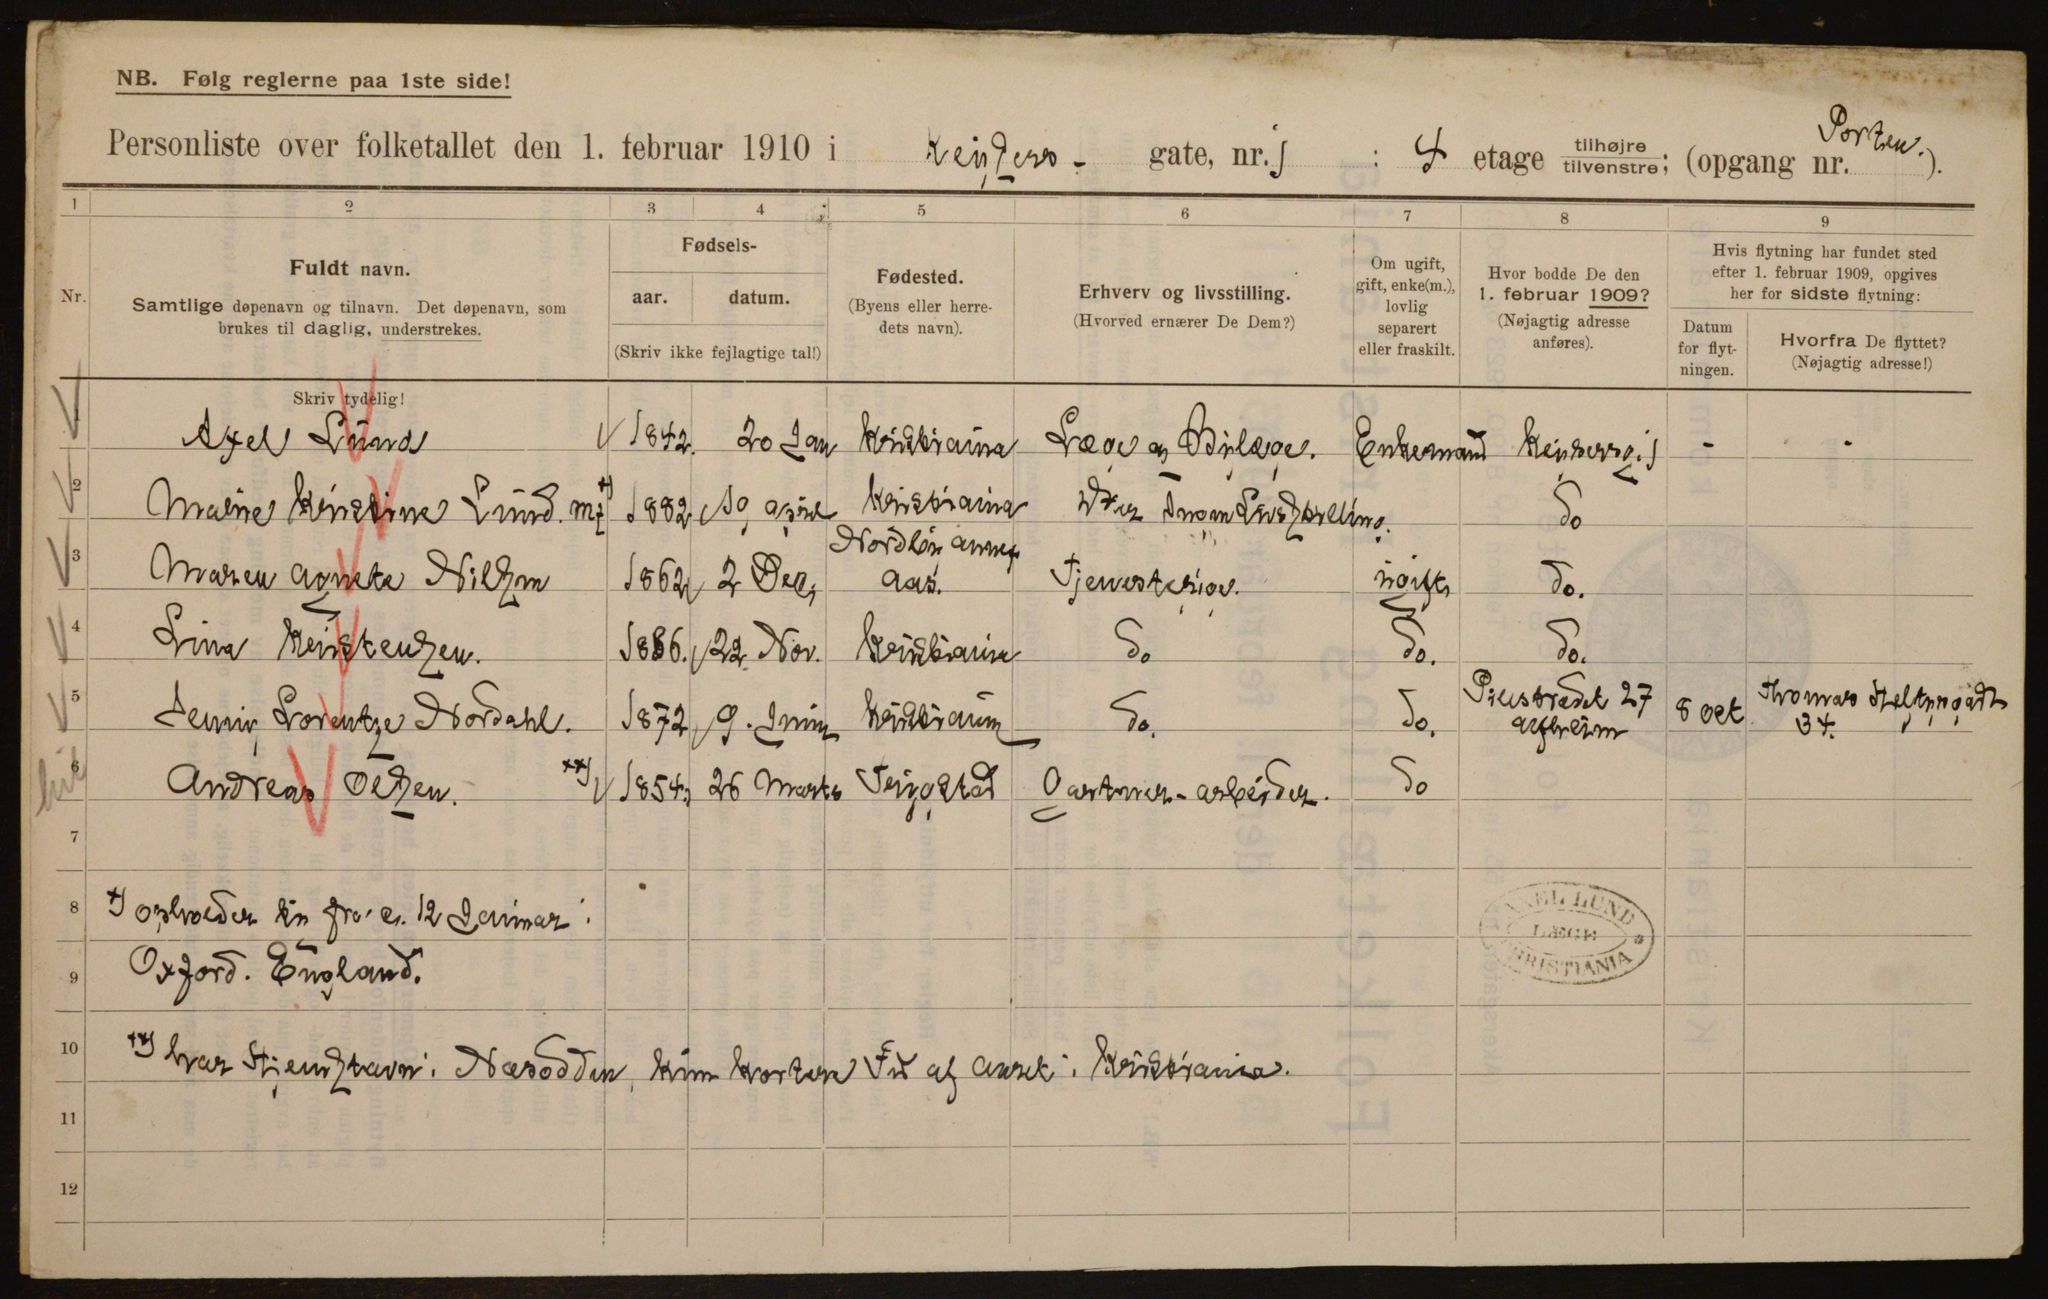 NB. Følg reglerne paa 1ste side!
Personliste over folketallet den 1. februar 1910 i Keysers- gate, nr. 1 : 4 etage tilhøjre tilvenstre; (opgang nr. Porten.).
1 2 3 4 5 6 7 8 9
Nr.
Fuldt navn.
Samtlige døpenavn og tilnavn. Det døpenavn, som
brukes til daglig, understrekes.
Fødsels-
aar. datum.
(Skriv ikke fejlagtige tal!)
Fødested.
(Byens eller herre-
dets navn).
Erhverv og livsstilling.
(Hvorved ernærer De Dem?)
Om ugift,
gift, enke(m.),
lovlig
separert
eller fraskilt.
Hvor bodde De den
1. februar 1909?
(Nøjagtig adresse
anføres).
Hvis flytning har fundet sted
efter 1. februar 1909, opgives
her for sidste flytning:
Datum
for flyt-
ningen.
Hvorfra De flyttet?
(Nøjagtig adresse!)
Skriv tydelig!
1 Axel Lund 1842. 20 Jan Kristiania Læge Enkemand Keysersg. 1 - -
2 Kristine Lund. +) 1882 19 april Kristiania do
3 Maren Agnete 1862 2 Dec, Aas. Tjenestepige. ugift, do.
4 Lina Kristensen. 1886. 22 Nov. Kristiania do do. do.
5 Jenny Lorentze Nordahl. 1872 9. Juni Kristiania do. do. Pilestrædet 27 8 oct Thomas Heftyesgade 34.
6 Andreas Olsen. ++) 1854. 26 Marts Gartner-arbeider. do
7
8 +) opholder sig fra 12 Januar i
9 Oxford. England.
10 ++) har i Næsodden, kun kortere Tid af aaret i Kristiania.
11
12
AXEL LUND
LÆGE
CHRISTIANIA